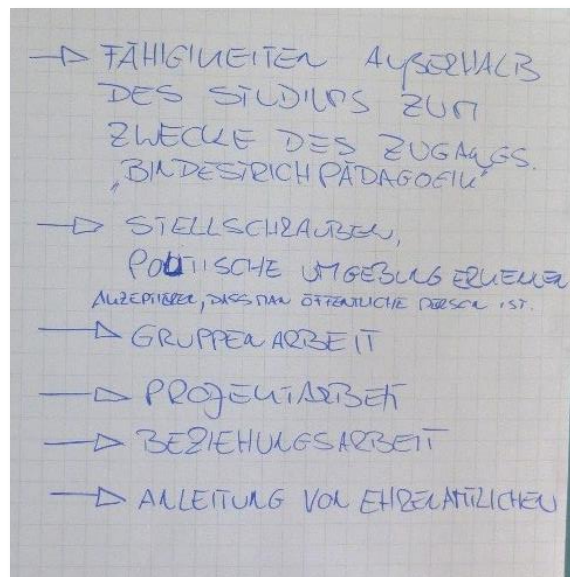 → FÄHIGKEITEN AUßERHALB
DES STUDIUMS ZUM
ZWECKE DES ZUGANGS.
„BINDESTRICHPÄDAGOGIK"
→ STELLSCHRAUBEN,
POLITISCHE UMGEBUNG ERKENNEN
AKZEPTIEREN, DASS MAN ÖFFENTLICHE PERSON IST.
→ GRUPPENARBEIT
→ PROJEKTARBEIT
→ BEZIEHUNGSARBEIT
→ ANLEITUNG VON EHRENAMTLICHEN